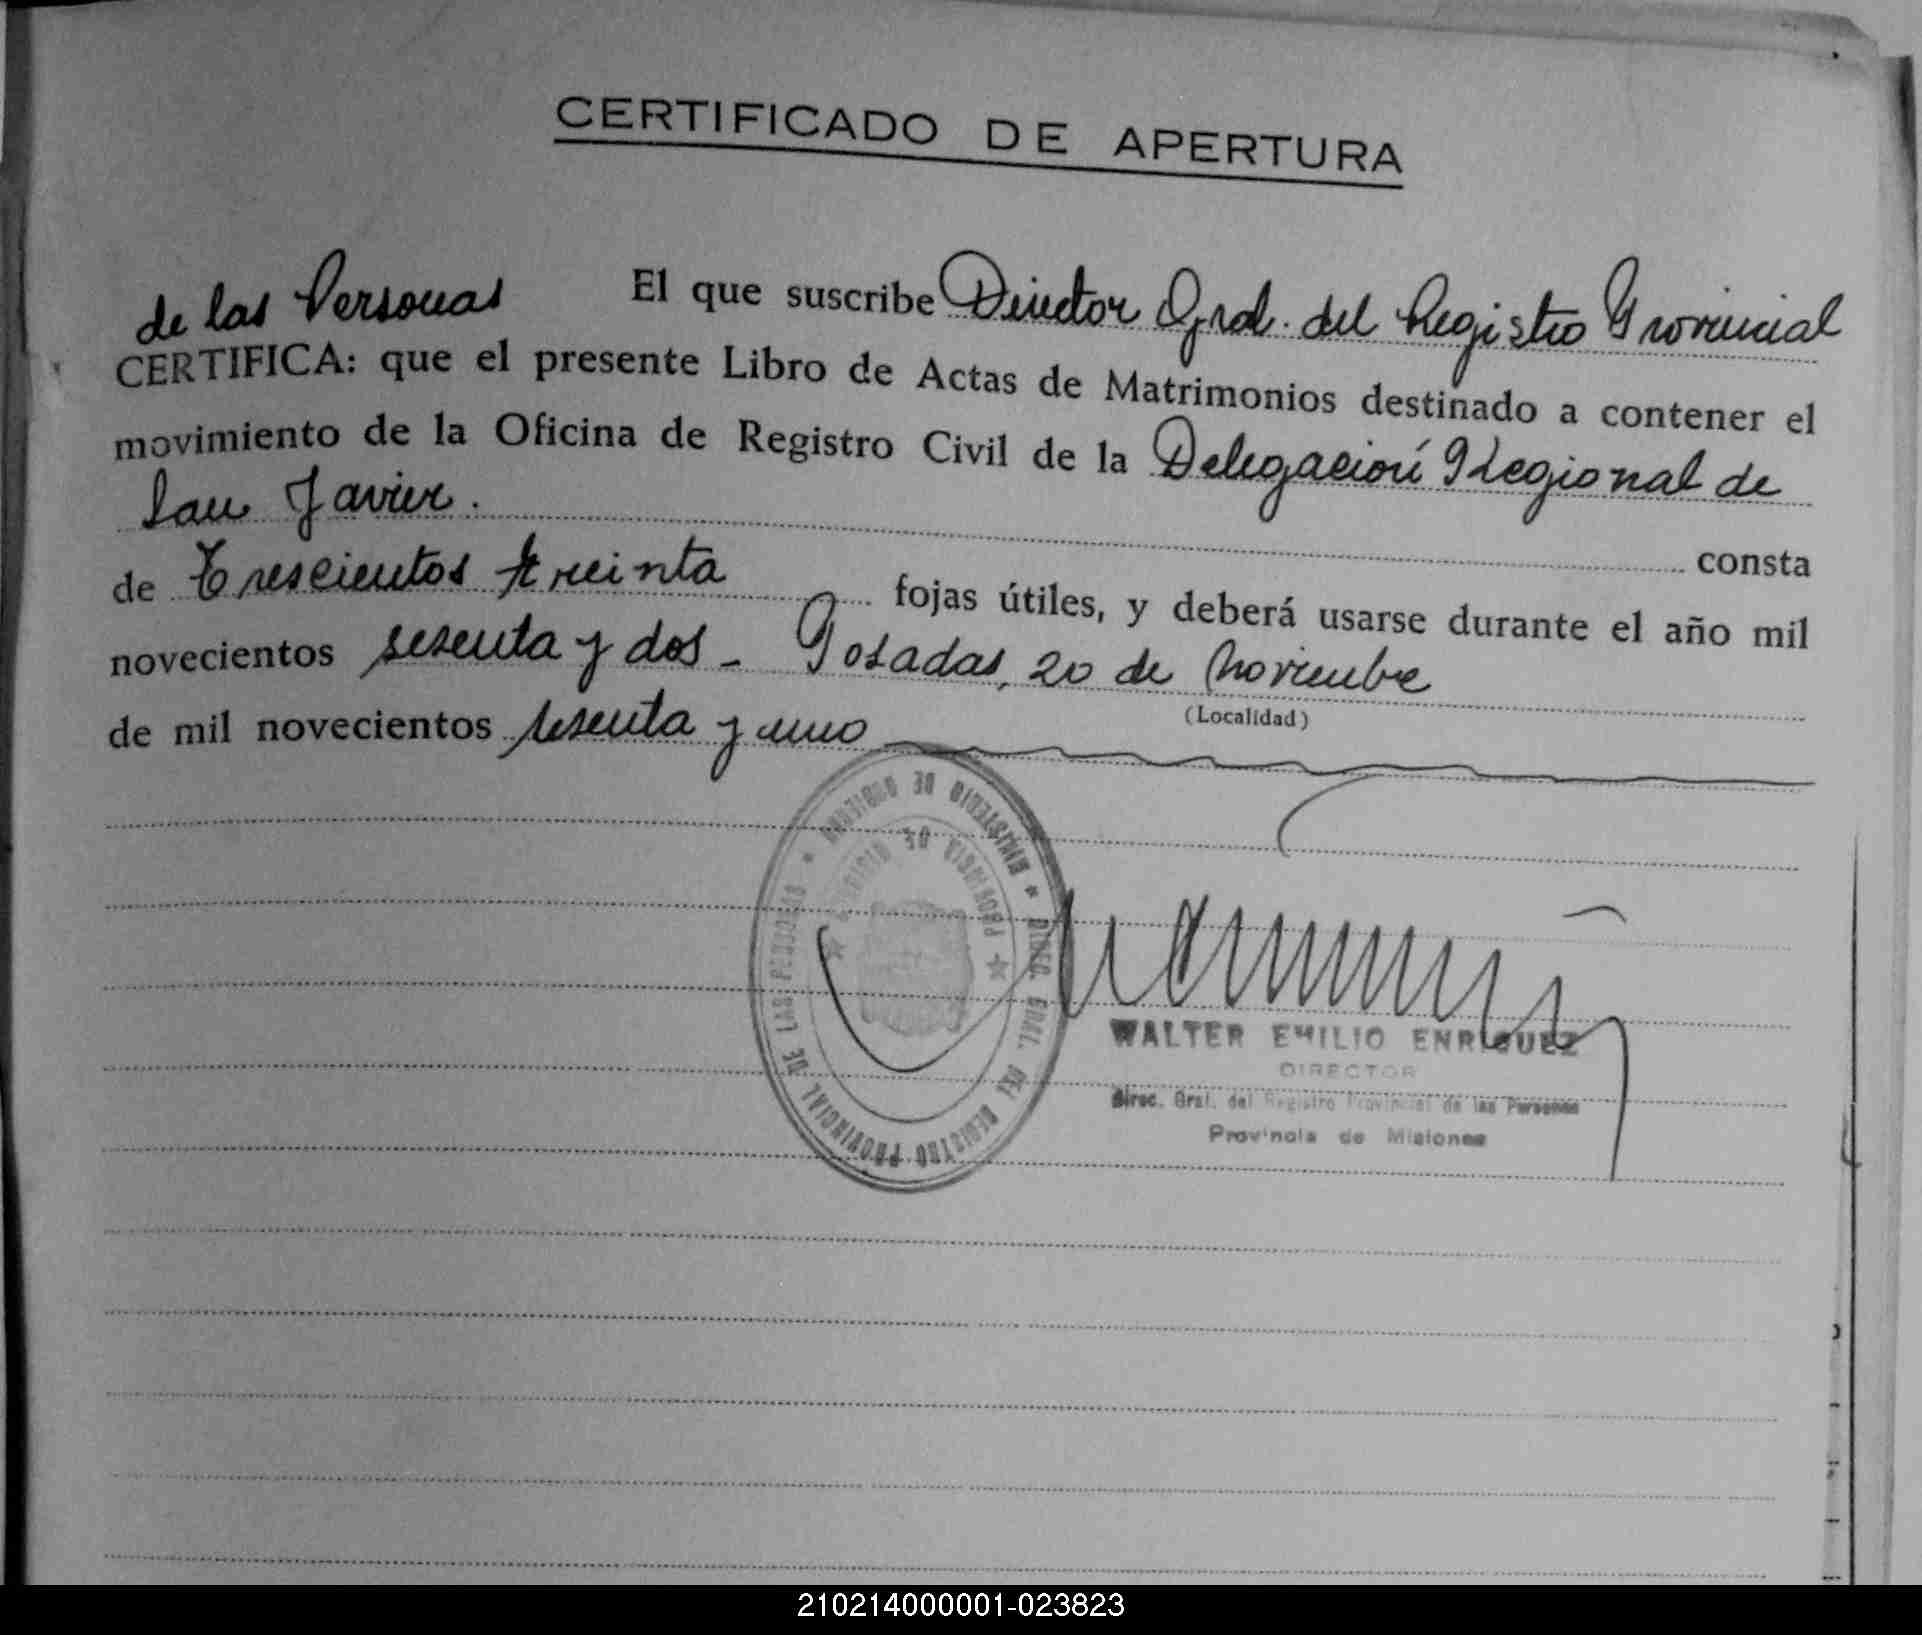 CERTIFICADO DE APERTURA
El que suscribe Director Gral. del Registro Provincial
de las Personas
CERTIFICA: que el presente Libro de Actas de Matrimonios destinado a contener el
movimiento de la Oficina de Registro Civil de la Delegación Regional de
San Javier. consta
de Trescientos treinta fojas útiles, y deberá usarse durante el año mil
novecientos sesenta y dos - Posadas, 20 de Noviembre
(Localidad)
de mil novecientos sesenta y uno
MINISTERIO DE GOBIERNO * DIREC. GRAL. DEL REGISTRO PROVINCIAL DE LAS PERSONAS *
PROVINCIA DE MISIONES
WALTER EMILIO ENRIQUEZ
DIRECTOR
Direc. Gral. del Registro Provincial de las Personas
Provincia de Misiones
210214000001-023823